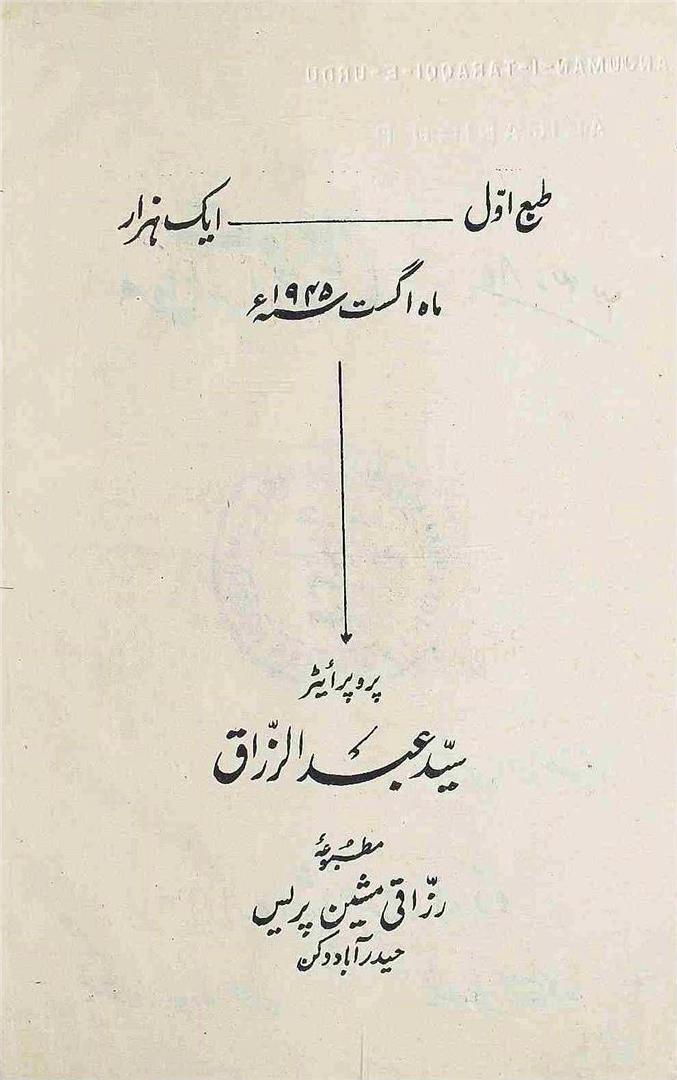 طبع اوّل ــــــــــــــــ ایک ہزار
ماہ اگست سنہ ۱۹۴۵ء
پروپرائٹر
سیّد عبد الرزّاق
مطبوعۂ
رزّاقی مشین پریس
حیدرآباد دکن